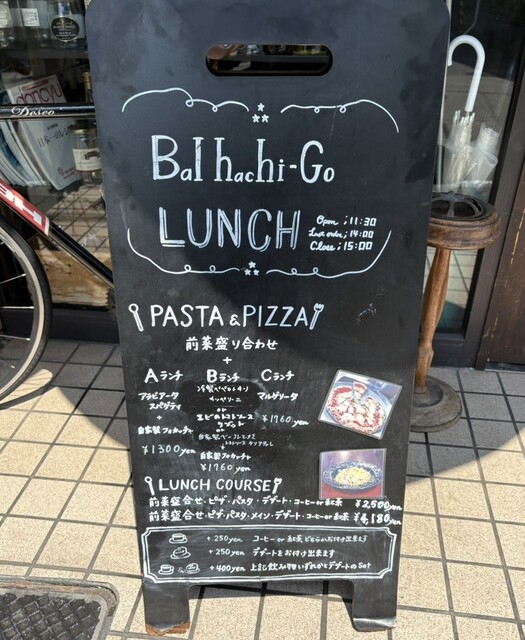 dancyu
Desco
Bal hachi-Go
LUNCH
Open ; 11:30
Last order ; 14:00
Close ; 15:00
PASTA & PIZZA
前菜盛り合わせ
+
Aランチ
アラビアータ
スパゲティ
+
自家製フォカッチャ
¥1300yen
Bランチ
冷製
カッペリーニ
or
エビのトマトソース
リゾット
or
自家製ベーコンと
トマトソース
+
自家製フォカッチャ
¥1760yen
Cランチ
マルゲリータ
¥1760yen
LUNCH COURSE
前菜盛合せ・ピザ・パスタ・デザート・コーヒーor紅茶 ¥2,500yen
前菜盛合せ・ピザ・パスタ・メイン・デザート・コーヒーor紅茶 ¥4,180yen
+250yen コーヒーor紅茶どちらかお付け出来ます
+250yen デザートをお付け出来ます
+400yen 上記飲み物いずれかとデザートのSet